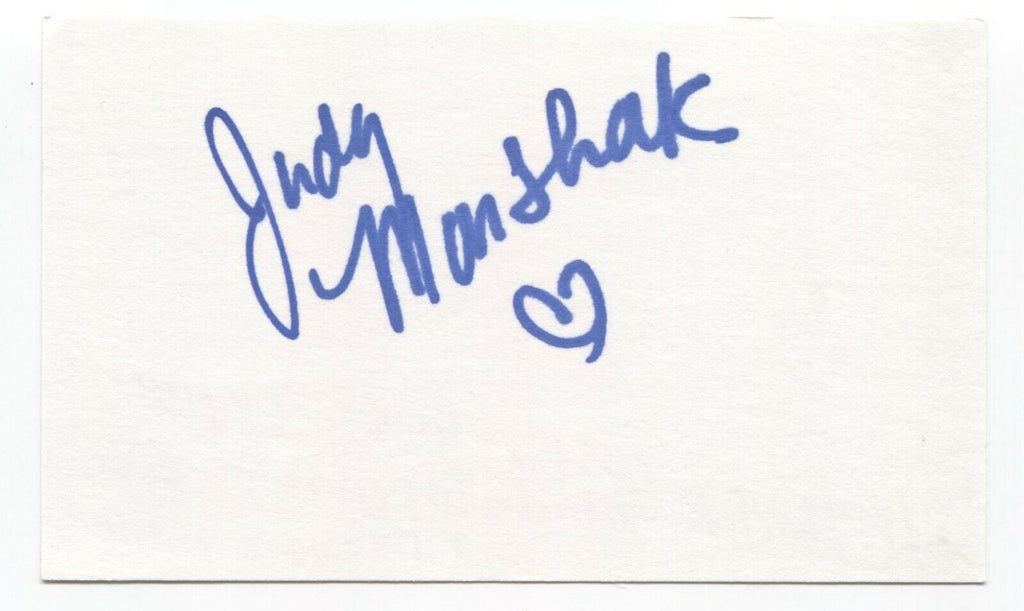 Judy
Marshak